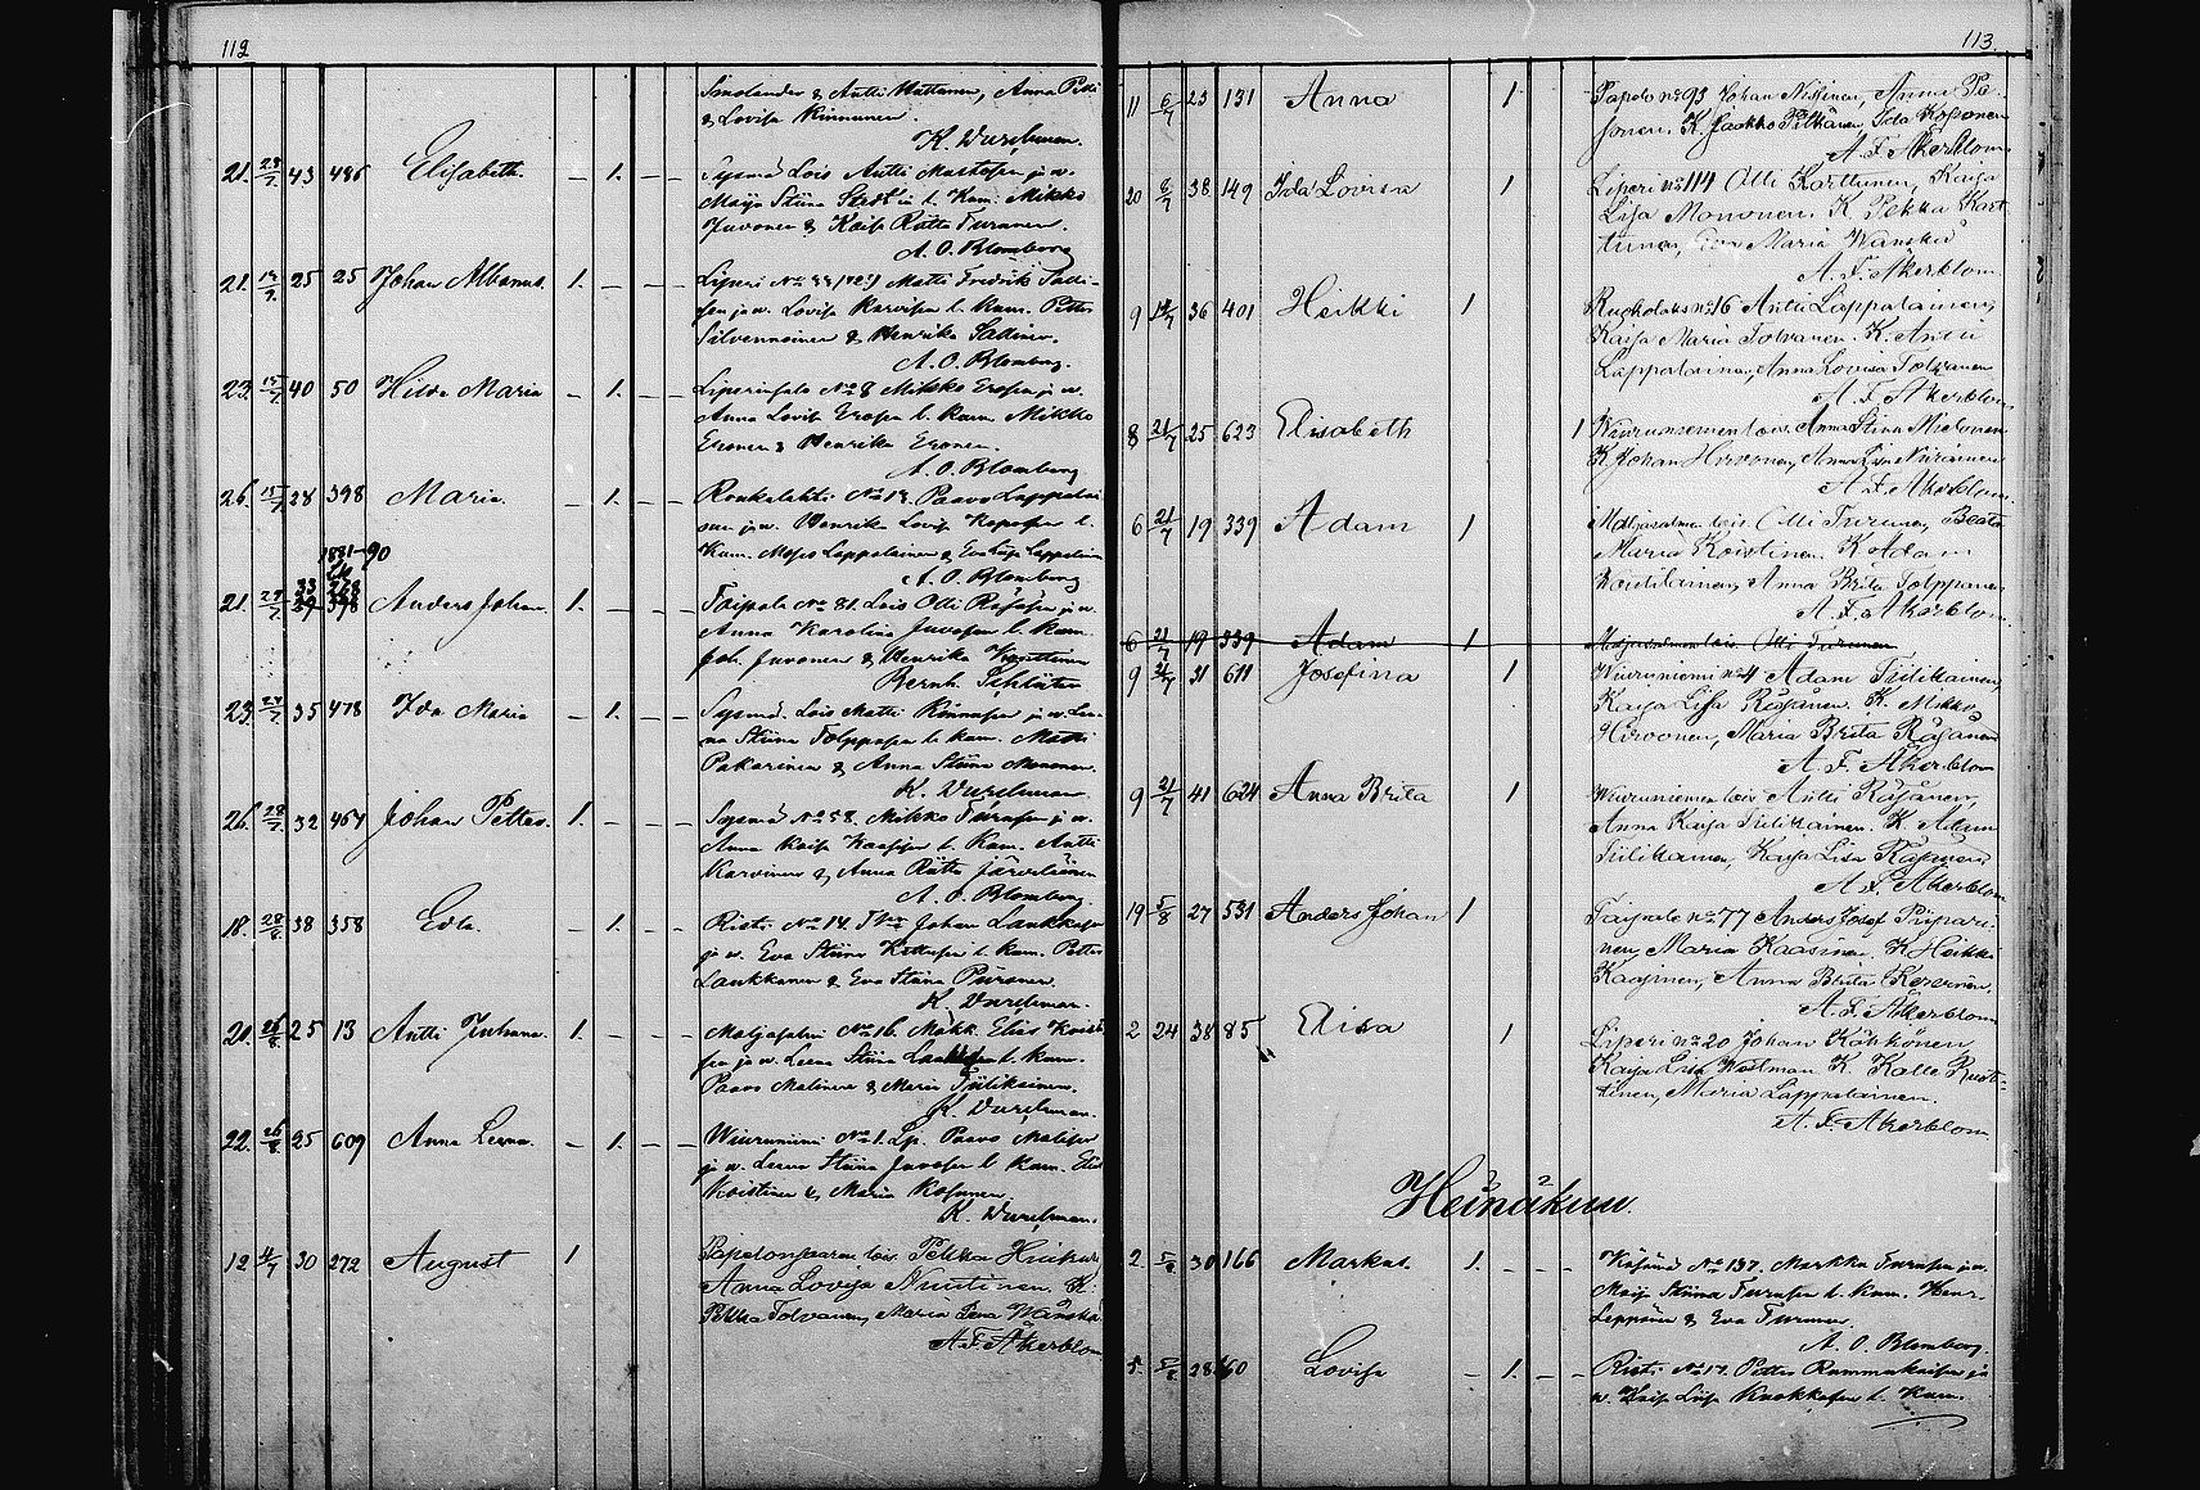 112
Smolander & Antti Muttonen, Anna Pitk
& Lovisa Kinnunen.
K. Durchman.
21. 28/7. 43 486 Elisabeth. – 1. – – Sysmä Lois Antti Mustosen ja w.
Maija Stiina l. Kum: Mikko
Juvonen & Kaisa Riitta Turunen.
A. O. Blomberg
21. 25 25 Johan Albanus. 1. – – – Liperi No Matti Fredrik Salli-
sen ja w. Lovisa Karvisen l. Kum. Petter
Silvennoinen & Henrika Sallinen.
A. O. Blomberg.
23. 40 50 Hilda Maria – 1. – – Liperinsalo No 8 Mikko Erosen ja w.
Anna Lovisa Erosen l. kum. Mikko
Eronen & Henrika Eronen.
A. O. Blomberg
26. 15/7 28 398 Maria. – 1. – – Roukalahti No Paavo Lappalai
sen ja w. Henrika Lovisa Koposen l.
Kum. Moses Lappalainen & Eva Liisa Lappalainen
A. O. Blomberg
1881–90
33
21. 27/7. 39 398 Anders Johan. 1. – – – Taipale No 81. Lois Olli Räsäsen ja w.
Anna Karolina Juvosen l. kum.
Joh. Juvonen & Henrika
Bernh. Schlüter
23. 27/7. 35 478 Ida Maria – 1. – – Sysmä. Lois Matti Kinnusen ja w. Lee-
na Stiina Tolpposen l. kum. Matti
Pakarinen & Anna Stiina Mononen.
K. Durchman
26. 28/7. 32 464 Johan Petter. 1. – – – Sysmä No 58. Mikko Turusen ja w.
Anna Kaisa Kaasisen l. Kum. Antti
Karvinen & Anna Riitta Järveläinen
A. O. Blomberg.
18. 28/8. 38 358 Edla. – 1. – – Risti No 14. Johan Laukkasen
ja w. Eva Stiina l. kum. Petter
Laukkanen & Eva Stiina Piironen.
K. Durchman.
20. 25 13 Antti Juhana. 1. – – – Maljasalmi No 16. Mökk. Elias Koisti
sen ja w. Leena Stiina l. kum.
Paavo Malinen & Maria Tiilikainen.
K. Durchman.
22. 26/8. 25 609 Anna Leena. – 1. – – Wiiruniemi No 1. Lp. Paavo Malisen
ja w. Leena Stiina Juvosen l. kum. Elias
Koistinen & Maria Kosunen.
K. Durchman.
12 4/7 30 272 August 1 Papelonsaaren lois. Pekka
Anna Lovisa Nuutinen. K:
Pekka Tolvanen, Maria Wänskä
A. F. Åkerblom
113.
11 6/7 23 131 Anna 1 Papelo no 93 Johan Nissinen, Anna Pa-
sonen. K. Jaakko Pitkänen, Ida Koponen
A. F. Åkerblom.
20 6/7 38 149 Ida Lovisa 1 Liperi no 114 Olli Karttunen, Kaisa
Lisa Mononen. K. Pekka Kart
tunen, Eva Maria Wänskä
A. F. Åkerblom.
9 14/7 36 401 Heikki 1 Ruokolaks no 16 Antti Lappalainen,
Kaisa Maria Tolvanen. K. Antti
Lappalainen, Anna Lovisa Tolvanen
A. F. Åkerblom
8 21/7 25 623 Elisabeth 1 Wiiruniemen lois. Anna Stina Mielonen
K. Johan Hirvonen, Anna Lisa Niiranen
A. F. Åkerblom.
6 21/7 19 339 Adam 1 Maljasalmen lois. Olli Turunen, Beata
Maria Koistinen. K. Adam
Woutilainen, Anna Brita Tolppanen
A. F. Åkerblom.
6 21/7 19 339 Adam 1 Maljasalmen lois. Olli Turunen
9 21/7 31 611 Josefina 1 Wiiruniemi no 4 Adam Tiilikainen,
Kaisa Lisa Räsänen. K. Mikko
Hirvonen, Maria Brita Räsänen
A. F. Åkerblom
9 21/7 41 624 Anna Brita 1 Wiiruniemen lois Antti Räsänen,
Anna Kaisa Tiilikainen. K. Adam
Tiilikainen, Kaisa Lisa Räsänen
A. F. Åkerblom
19 5/8 27 531 Anders Johan 1 Taipale no 77 Anders Josef Piipari-
nen, Maria Kaasinen. K. Heikki
Kaasinen, Anna Brita Kervinen.
A. F. Åkerblom
2 24 38 85 Elisa 1 Liperi no 20 Johan Kähkönen,
Kaisa Lisa Westman K. Kalle Rust-
tinen, Maria Lappalainen.
A. F. Åkerblom.
Heinäkuu.
2 5/8 30 166 Markus. 1. – – – Käsämä No 137. Markku Turusen ja w.
Maija Stiina Turusen l. Kum. Henr.
Leppänen & Eva Turunen.
A. O. Blomberg.
5. 28 Lovisa – 1. – – Risti No 17. Petter Rummukaisen ja
w. Kaisa Liisa Kuokkasen l. Kum.